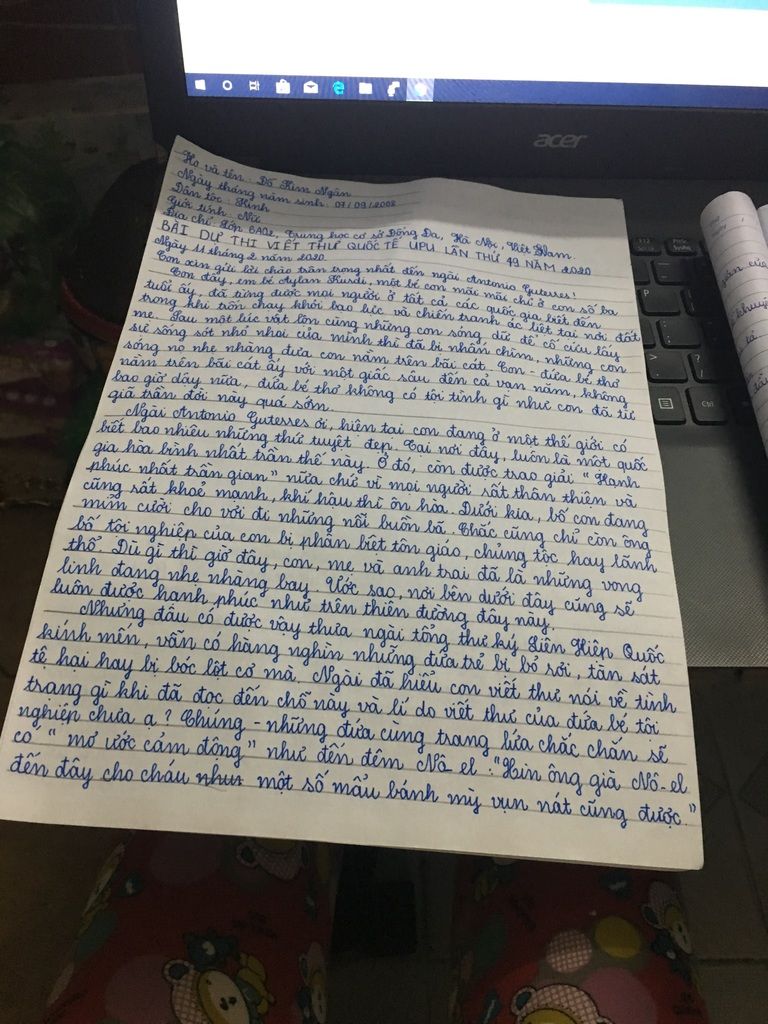 acer
Họ và tên: Đỗ Kim Ngân
Ngày tháng năm sinh: 07/09/2008
Dân tộc: Kinh
Giới tính: Nữ
Địa chỉ: Lớp 6A02, Trung học cơ sở Đống Đa, Hà Nội, Việt Nam.
BÀI DỰ THI VIẾT THƯ QUỐC TẾ UPU LẦN THỨ 49 NĂM 2020
Ngày 11 tháng 2 năm 2020
Con xin gửi lời chào trân trọng nhất đến ngài Antonio Guterres!
Con đây, em bé Aylan Kurdi, một bé con mãi mãi chỉ ở con số ba
tuổi ấy, đã từng được mọi người ở tất cả các quốc gia biết đến
trong khi trốn chạy khỏi bạo lực và chiến tranh ác liệt tại nơi đất
mẹ. Sau một lúc vật lộn cùng những con sóng dữ để cố cứu lấy
sự sống sót nhỏ nhoi của mình thì đã bị nhấn chìm, những con
sóng nọ nhẹ nhàng đưa con nằm trên bãi cát. Con - đứa bé thơ
nằm trên bãi cát ấy với một giấc sâu đến cả vạn năm, không
bao giờ dậy nữa, đứa bé thơ không có tội tình gì như con đã từ
giã trần đời này quá sớm.
Ngài Antonio Guterres ơi, hiện tại con đang ở một thế giới có
biết bao nhiêu những thứ tuyệt đẹp. Tại nơi đây, luôn là một quốc
gia hòa bình nhất trần thế này. Ở đó, còn được trao giải "Hạnh
phúc nhất trần gian" nữa chứ vì mọi người rất thân thiện và
cũng rất khoẻ mạnh, khí hậu thì ôn hòa. Dưới kia, bố con đang
mỉm cười cho vơi đi những nỗi buồn bã. Chắc cũng chỉ còn ông
bố tội nghiệp của con bị phân biệt tôn giáo, chủng tộc hay lãnh
thổ. Dù gì thì giờ đây, con, mẹ và anh trai đã là những vong
linh đang nhẹ nhàng bay. Ước sao, nơi bên dưới đây cũng sẽ
luôn được hạnh phúc như trên thiên đường đây này.
Nhưng đâu có được vậy thưa ngài tổng thư ký Liên Hiệp Quốc
kính mến, vẫn có hàng nghìn những đứa trẻ bị bỏ rơi, tàn sát
tệ hại hay bị bóc lột cơ mà. Ngài đã hiểu con viết thư nói về tình
trạng gì khi đã đọc đến chỗ này và lí do viết thư của đứa bé tội
nghiệp chưa ạ? Chúng - những đứa cùng trang lứa chắc chắn sẽ
có "mơ ước cảm động" như đến đêm Nô el: "Xin ông già Nô-el
đến đây cho cháu như một số mẩu bánh mỳ vụn nát cũng được."
Ctrl